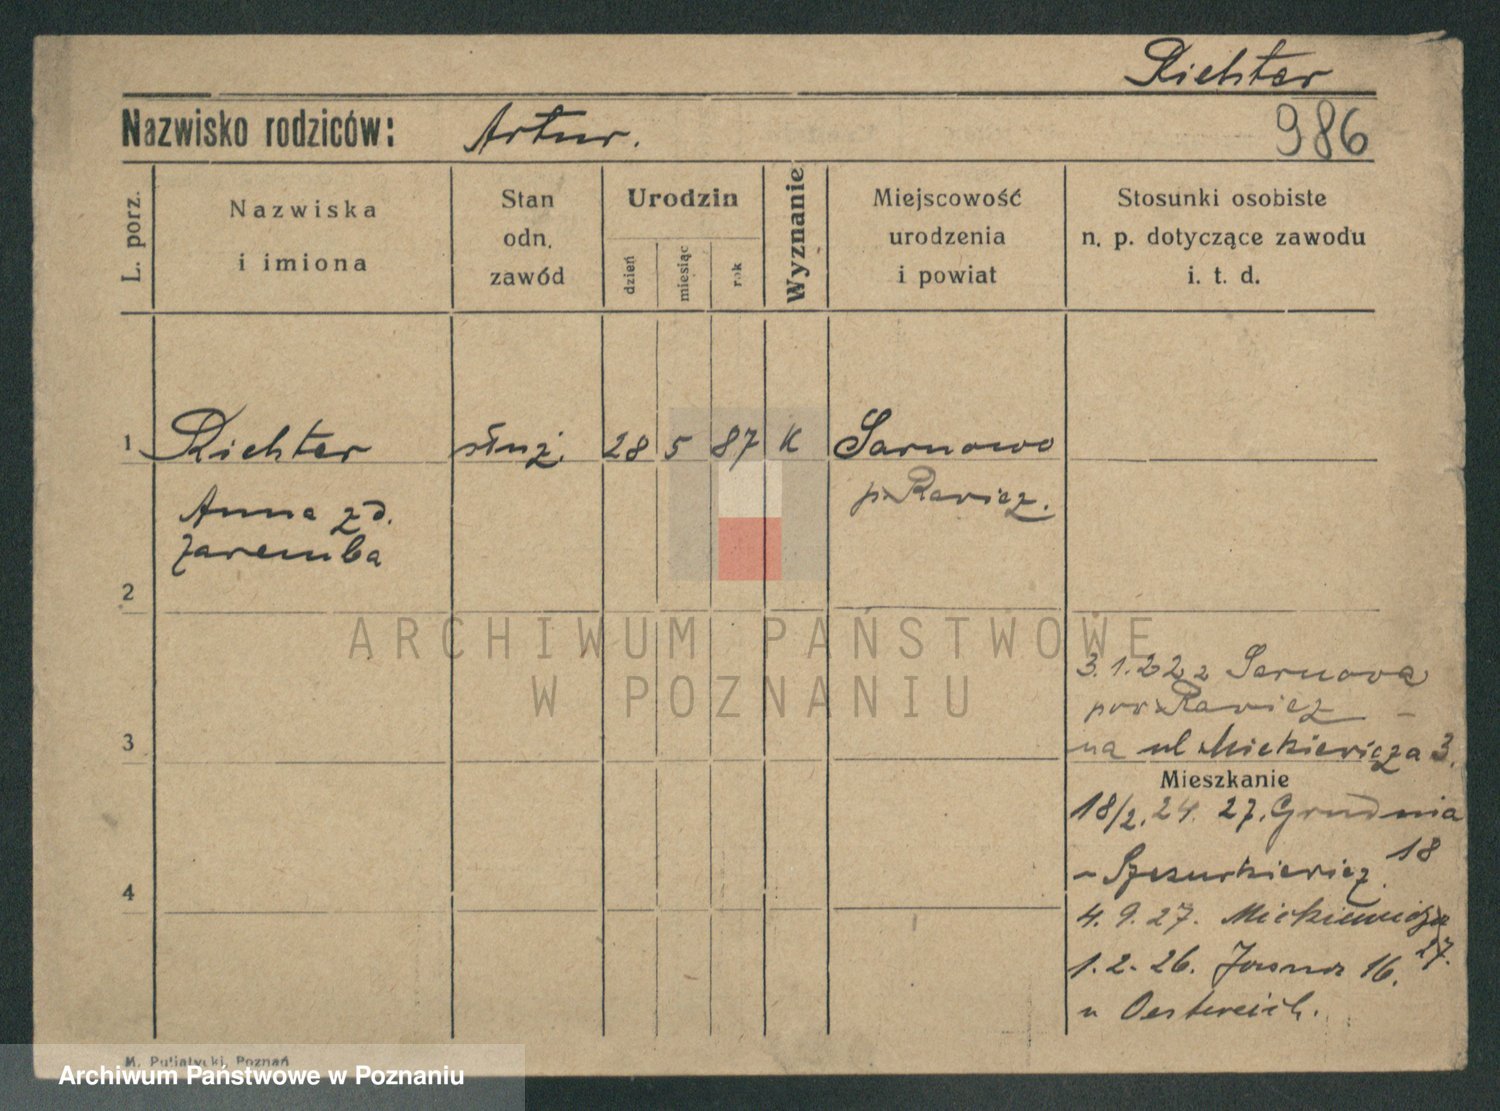 Richter
Nazwisko rodziców: Artur.
986
L. porz.
Nazwiska
i imiona
Stan
odn.
zawód
Urodzin
dzień
miesiąc
rok
Wyznanie
Miejscowość
urodzenia
i powiat
Stosunki osobiste
n. p. dotyczące zawodu
i. t. d.
1 Richter służ. 28 5 87 K Sarnowo
Anna zd. p. Rawicz.
Zaremba
2
ARCHIWUM PAŃSTWOWE
W POZNANIU
3.1.22 z Sarnova
pow Rawicz
na ul Mickiewicza 3.
3
Mieszkanie
18/2. 24. 27. Grudnia
18
4
4. 9. 27. Mickiewicza
27.
1. 2. 26. Jasna 16.
u Oestereich.
M. Putiatycki, Poznań
Archiwum Państwowe w Poznaniu